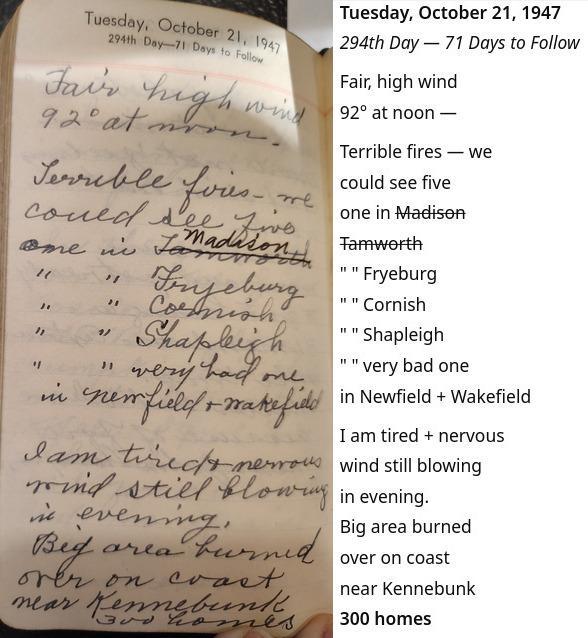 Tuesday, October 21, 1947
294th Day—71 Days to Follow
Fair high wind
92° at noon.
Terrible fires— we
could see five
one in Tamworth Madison
" " Fryeburg
" " Cornish
" " Shapleigh
" " very bad one
in Newfield + Wakefield
I am tired + nervous
wind still blowing
in evening.
Big area burned
over on coast
near Kennebunk
300 homes
Tuesday, October 21, 1947
294th Day — 71 Days to Follow
Fair, high wind
92° at noon —
Terrible fires — we
could see five
one in Madison
Tamworth
" " Fryeburg
" " Cornish
" " Shapleigh
" " very bad one
in Newfield + Wakefield
I am tired + nervous
wind still blowing
in evening.
Big area burned
over on coast
near Kennebunk
300 homes